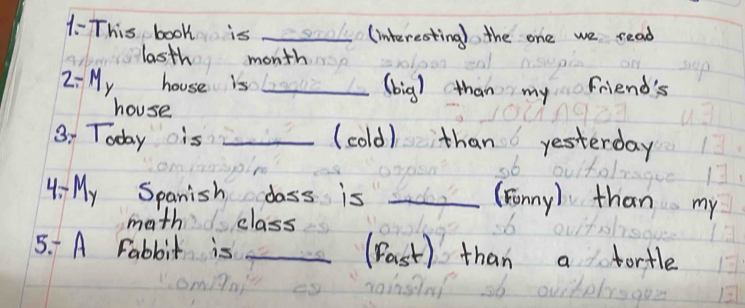 1.- This book is ________ (interesting) the one we read
lasth month
2.- My house is ________ (big) than my friend's
house
3.- Today is ________ (cold) than yesterday
4.- My Spanish class is ________ (funny) than my
math class
5.- A Fabbit is ________ (fast) than a tortle